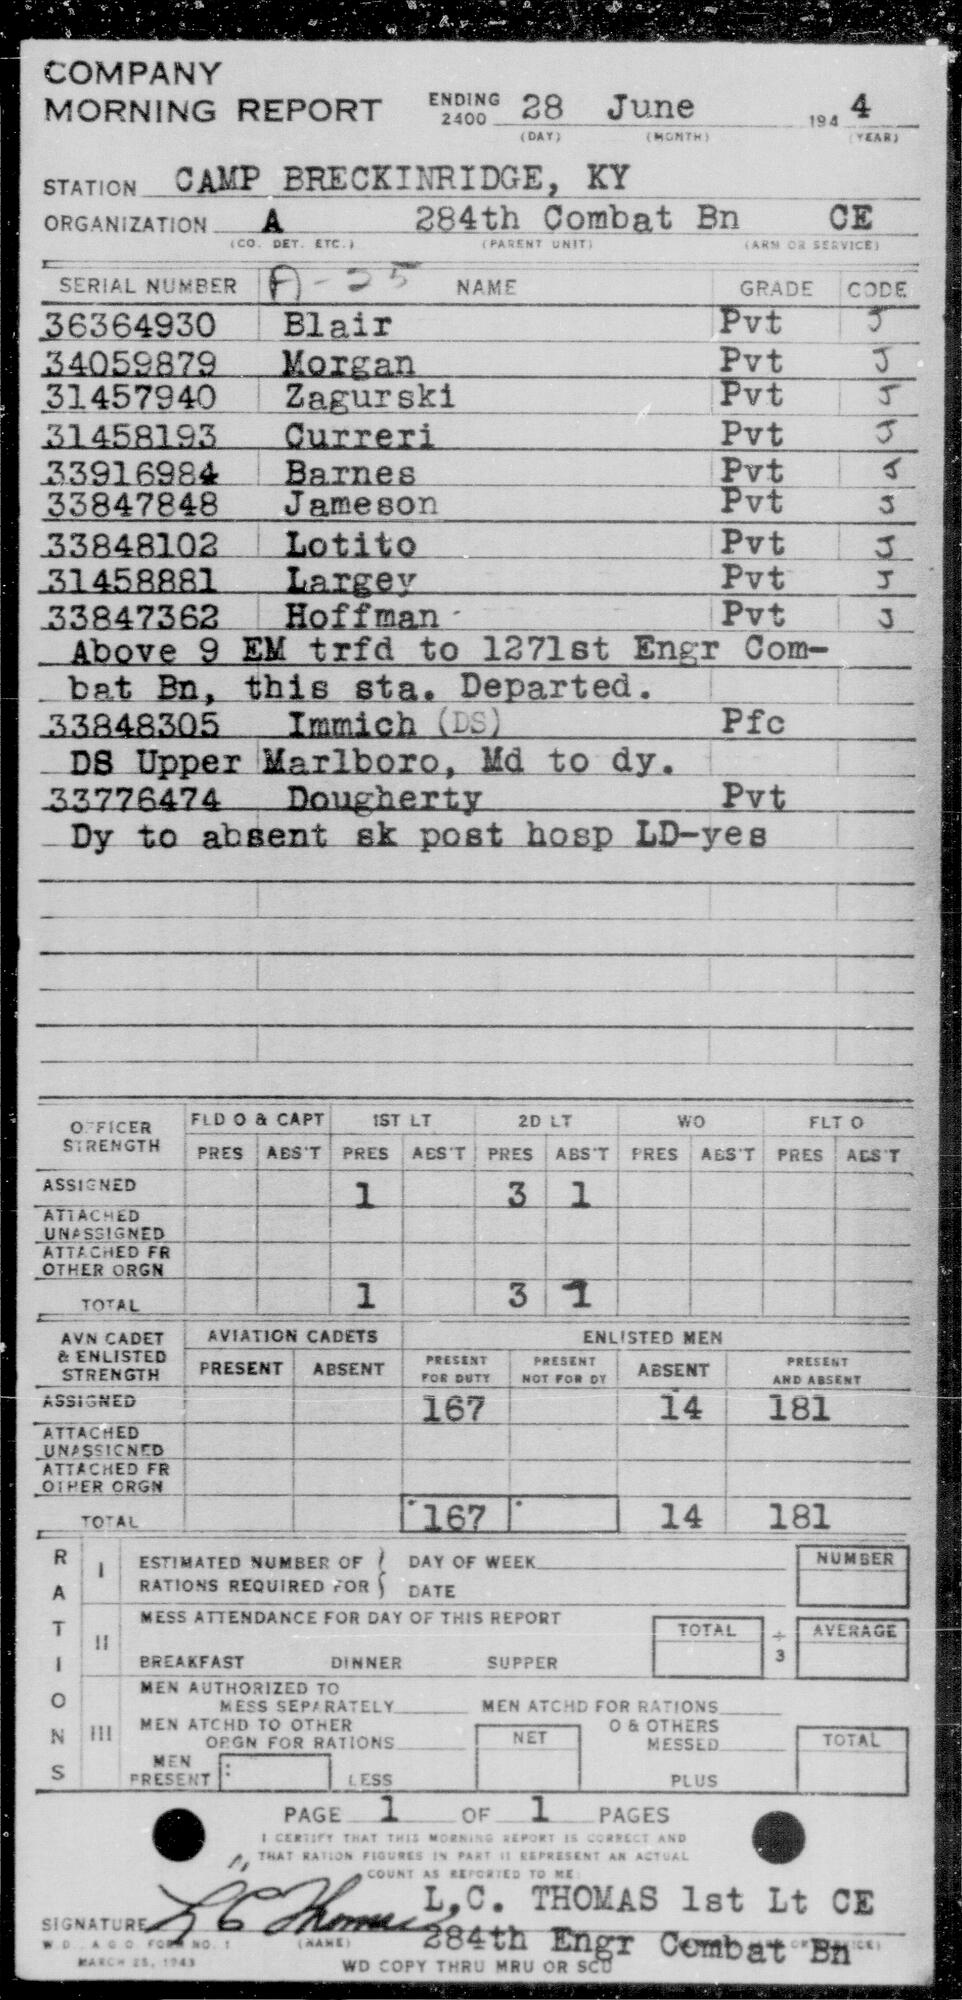 COMPANY
MORNING REPORT ENDING 2400 28 June 194 4
(DAY) (MONTH) (YEAR)
STATION CAMP BRECKINRIDGE, KY
ORGANIZATION A 284th Combat Bn CE
(CO. DET. ETC.) (PARENT UNIT) (ARM OR SERVICE)
SERIAL NUMBER A-25 NAME GRADE CODE
36364930 Blair Pvt J
34059879 Morgan Pvt J
31457940 Zagurski Pvt J
31458193 Curreri Pvt J
33916984 Barnes Pvt J
33847848 Jameson Pvt J
33848102 Lotito Pvt J
31458881 Largey Pvt J
33847362 Hoffman Pvt J
Above 9 EM trfd to 1271st Engr Com-
bat Bn, this sta. Departed.
33848305 Immich (DS) Pfc
DS Upper Marlboro, Md to dy.
33776474 Dougherty Pvt
Dy to absent sk post hosp LD-yes
OFFICER STRENGTH FLD O & CAPT 1ST LT 2D LT WO FLT O
PRES ABS'T PRES ABS'T PRES ABS'T PRES ABS'T PRES ABS'T
ASSIGNED 1 3 1
ATTACHED UNASSIGNED
ATTACHED FR OTHER ORGN
TOTAL 1 3 1
AVN CADET & ENLISTED STRENGTH AVIATION CADETS ENLISTED MEN
PRESENT ABSENT PRESENT FOR DUTY PRESENT NOT FOR DY ABSENT PRESENT AND ABSENT
ASSIGNED 167 14 181
ATTACHED UNASSIGNED
ATTACHED FR OTHER ORGN
TOTAL 167 14 181
RATIONS
I ESTIMATED NUMBER OF RATIONS REQUIRED FOR DAY OF WEEK NUMBER
DATE
II MESS ATTENDANCE FOR DAY OF THIS REPORT TOTAL ÷ 3 AVERAGE
BREAKFAST DINNER SUPPER
III MEN AUTHORIZED TO MESS SEPARATELY MEN ATCHD FOR RATIONS
MEN ATCHD TO OTHER ORGN FOR RATIONS NET O & OTHERS MESSED TOTAL
MEN PRESENT : LESS PLUS
PAGE 1 OF 1 PAGES
I CERTIFY THAT THIS MORNING REPORT IS CORRECT AND
THAT RATION FIGURES IN PART II REPRESENT AN ACTUAL
COUNT AS REPORTED TO ME:
L.C. THOMAS 1st Lt CE
SIGNATURE L C Thomas
284th Engr Combat Bn
W.D., A.G.O. FORM NO. 1 (NAME)
MARCH 25, 1943
WD COPY THRU MRU OR SCU